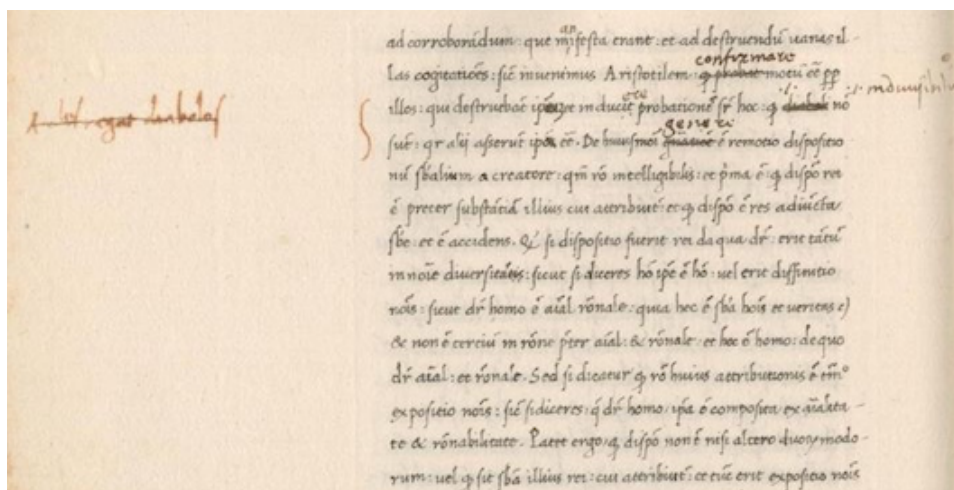 ad corroborādum: que māifesta erant: et ad destruendū uanas il-
las cogitatiōēs: sic̄ inuenimus Aristotilem: ꝙ probat confirmare motū eē ꝓp
illos: que destruebāt ipm̄ inducere probationē sr̄ hoc: ꝙ diaboli nō
sūt: qr alij asserūt ipōs eē. De huiusmōi generi ē remotio dispositio
nū sb̄alium a creatore: qm̄ rō intelligibilis: et p̄ma ē: ꝙ dispō rei
ē preter substātiā illius cui attribuit̄: et ꝙ dispō ē res adiūcta
sbē: et ē accidens. Qꝫ si dispositio fuerit rei de qua dr̄: erit tātū
in noīe diuersitatis: sicut si diceres hō ipē ē hō: uel erit diffinitio
noīs: sicut dr̄ homo ē aīal rōnale: quia hec ē sb̄a hoīs et ueritas eꝰ
& non ē terciū in rōne p̄ter aīal: & rōnale: et hoc ē homo: de quo
dr̄ aīal: et rōnale. Sed si dicatur ꝙ rō huius attributionis ē tm̄º
expositio noīs: sic̄ si diceres: ꝙ dr̄ homo: ipā ē composita ex aīalita-
te & rōnabilitate. Patet ergo: ꝙ dispō non ē nisi altero duoꝝ modo-
rum: uel ꝙ sit sb̄a illius rei: cui attribuit̄: et tūc erit expositio noīs
negat diabolos